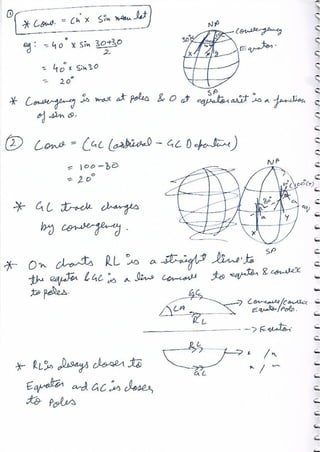 ①
* Conv = Ch' x Sin mean lat
eg: = 40° x Sin 30+30
2
= 40° x Sin 30
= 20°
NP
30°
Convergency
Equator
SP
* Convergency is max at poles & 0 at equator as it is a function
of sin θ.
② Conv = (GC (arrival - GC Departure)
= 100 - 80
= 20°
NP
SP
* GC track changes
by convergency.
* On charts RL is a straight line to
the equator & GC is a line concave to equator & convex
to poles.
GC
CA
RL
→ Concave/convex
Equator/Pole.
→ Equator
RL
GC
* RL is always closer to
Equator and GC is closer
to Poles